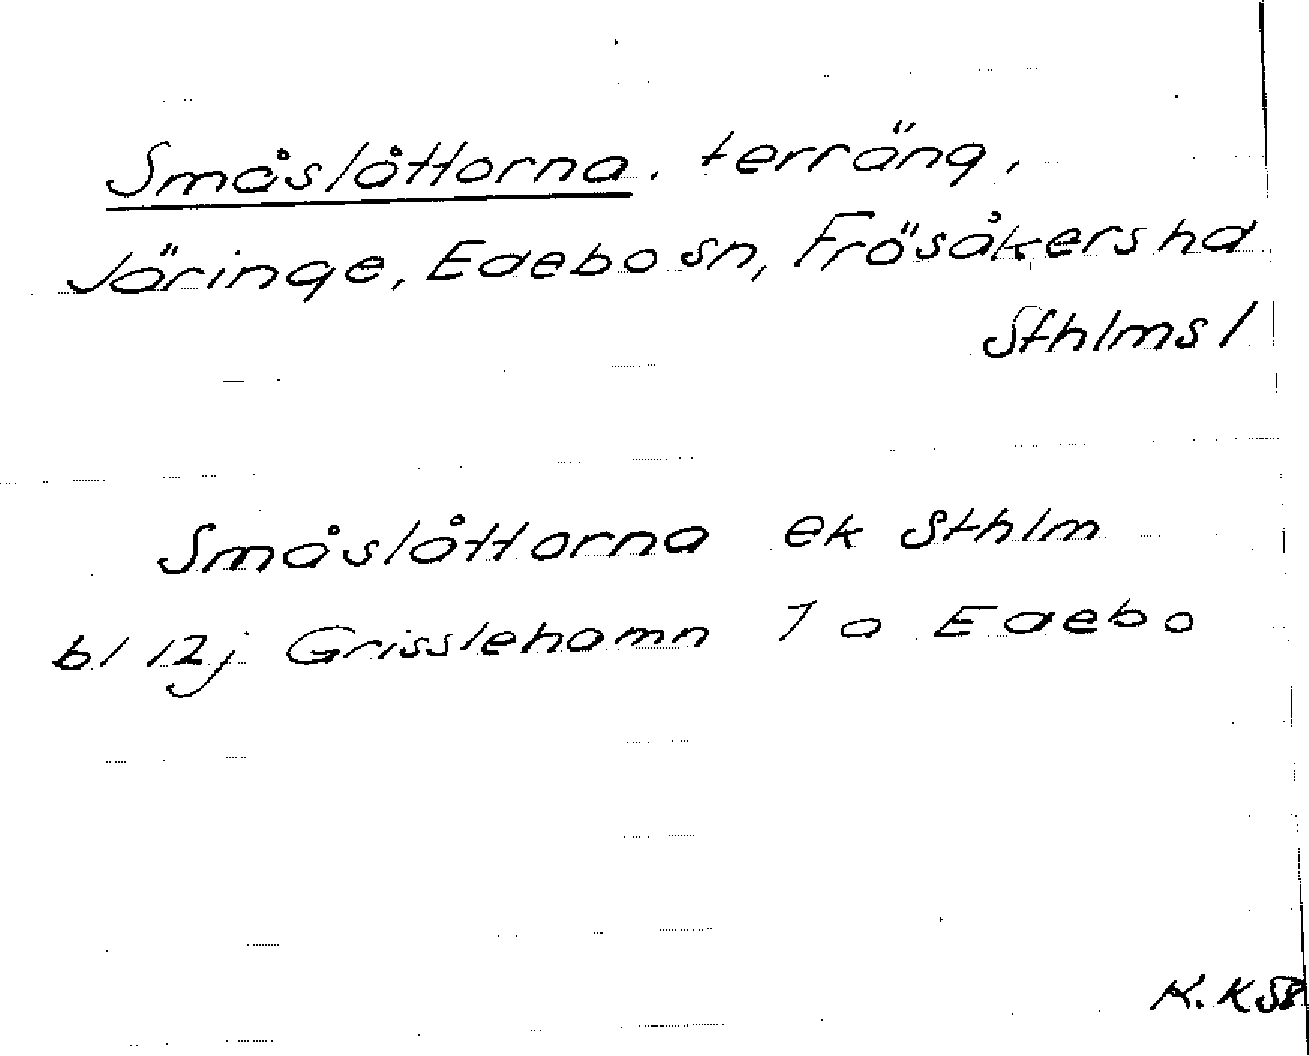 Småslåttorna. terräng,
Väringe, Edebo sn, Frösåkers hd
Sthlms l
Småslåttorna ek Sthlm
bl 12j Grisslehamn 7 a Edebo
K.KSP